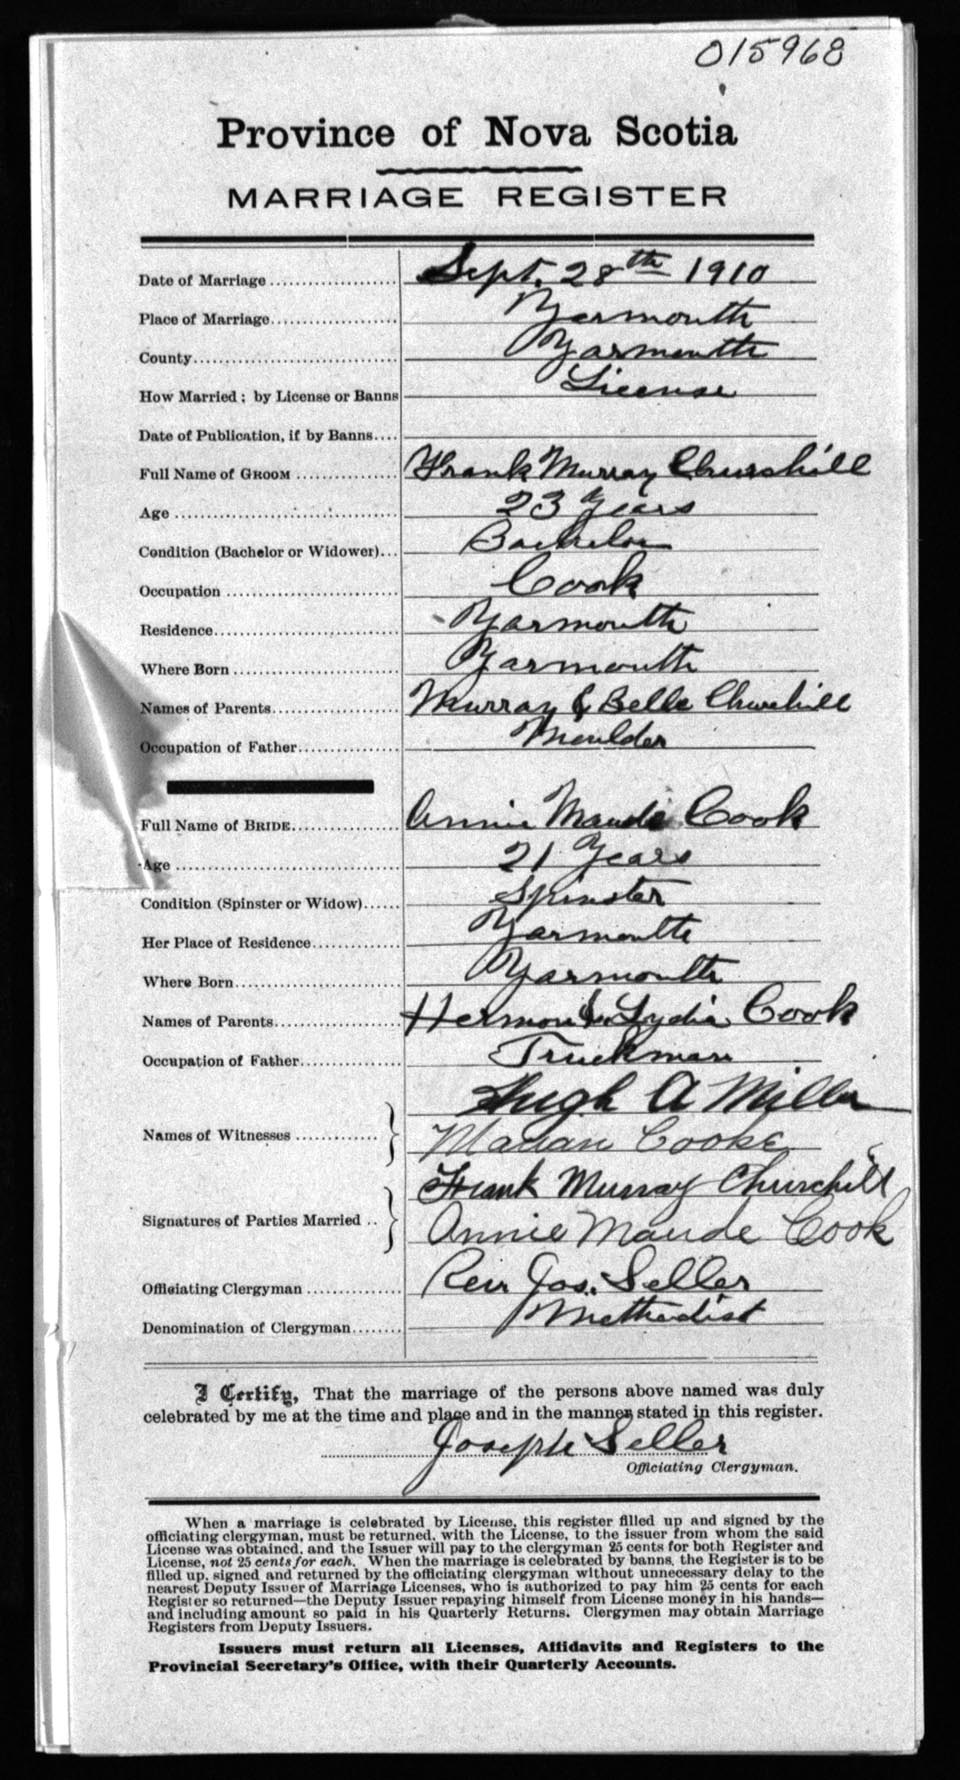 015968
Province of Nova Scotia
MARRIAGE REGISTER
Date of Marriage Sept. 28th 1910
Place of Marriage Yarmouth
County Yarmouth
How Married; by License or Banns License
Date of Publication, if by Banns
Full Name of GROOM Frank Murray Churchill
Age 23 Years
Condition (Bachelor or Widower) Bachelor
Occupation Cook
Residence Yarmouth
Where Born Yarmouth
Names of Parents Murray & Belle Churchill
Occupation of Father Moulder
Full Name of BRIDE Annie Maude Cook
Age 21 Years
Condition (Spinster or Widow) Spinster
Her Place of Residence Yarmouth
Where Born Yarmouth
Names of Parents Hermon & Lydia Cook
Occupation of Father Truckman
Hugh A Miller
Names of Witnesses
Marian Cooke
Frank Murray Churchill
Signatures of Parties Married
Annie Maude Cook
Officiating Clergyman Rev Jos. Seller
Denomination of Clergyman Methodist
I Certify, That the marriage of the persons above named was duly
celebrated by me at the time and place and in the manner stated in this register.
Joseph Seller
Officiating Clergyman.
When a marriage is celebrated by License, this register filled up and signed by the
officiating clergyman, must be returned, with the License, to the issuer from whom the said
License was obtained, and the Issuer will pay to the clergyman 25 cents for both Register and
License, not 25 cents for each. When the marriage is celebrated by banns, the Register is to be
filled up, signed and returned by the officiating clergyman without unnecessary delay to the
nearest Deputy Issuer of Marriage Licenses, who is authorized to pay him 25 cents for each
Register so returned—the Deputy Issuer repaying himself from License money in his hands—
and including amount so paid in his Quarterly Returns. Clergymen may obtain Marriage
Registers from Deputy Issuers.
Issuers must return all Licenses, Affidavits and Registers to the
Provincial Secretary's Office, with their Quarterly Accounts.